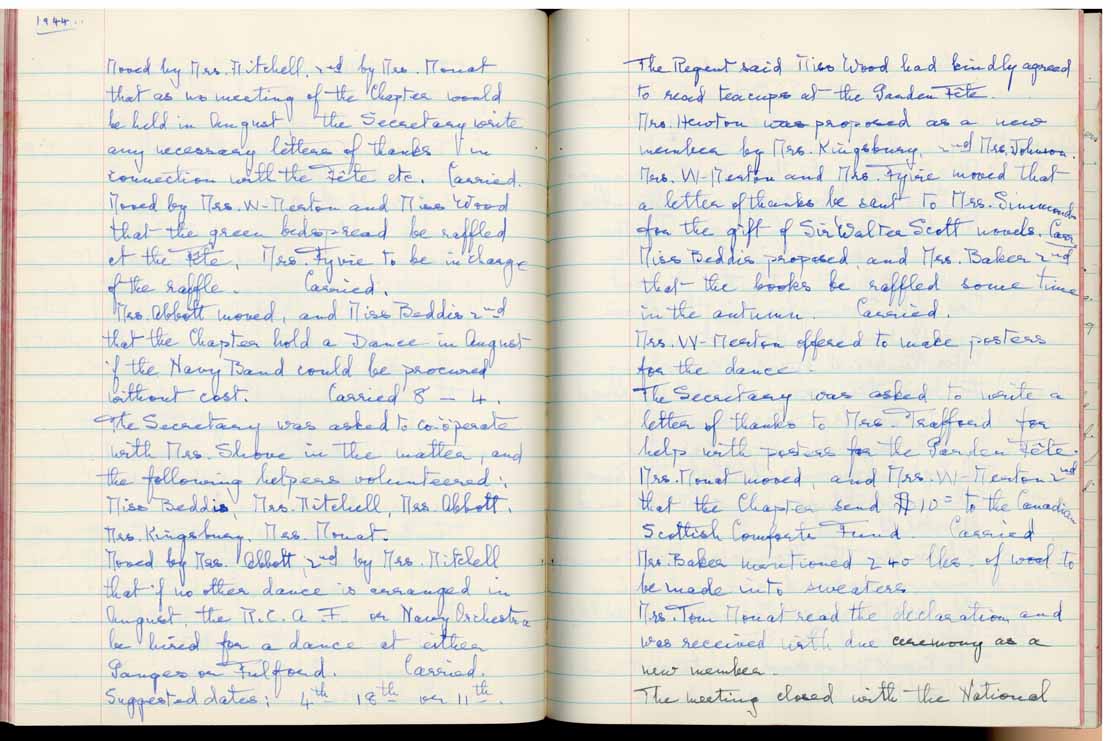 1944..
Moved by Mrs. Mitchell, 2nd by Mrs. Mouat
that as no meeting of the Chapter would
be held in August the Secretary write
any necessary letters of thanks in
connection with the Fête etc. Carried.
Moved by Mrs. W-Merton and Miss Wood
that the green bedspread be raffled
at the Fête, Mrs. Fyvie to be in charge
of the raffle. Carried.
Mrs. Abbott moved, and Miss Beddis 2nd
that the Chapter hold a Dance in August
if the Navy Band could be procured
without cost. Carried 8 - 4.
The Secretary was asked to co-operate
with Mrs. Shove in the matter, and
the following helpers volunteered:
Miss Beddis, Mrs. Mitchell, Mrs. Abbott.
Mrs. Kingsbury. Mrs. Mouat.
Moved by Mrs. Abbott, 2nd by Mrs. Mitchell
that if no other dance is arranged in
August, the R.C.A.F. or Navy Orchestra
be hired for a dance at either
Ganges or Fulford. Carried.
Suggested dates: 4th 18th or 11th.
The Regent said Miss Wood had kindly agreed
to read teacups at the Garden Fête.
Mrs. Newton was proposed as a new
member by Mrs. Kingsbury, 2nd Mrs. Johnson.
Mrs. W-Merton and Mrs. Fyvie moved that
a letter of thanks be sent to Mrs. Simmonds
for the gift of Sir Walter Scott novels. Carr
Miss Beddis proposed, and Mrs. Baker 2nd
that the books be raffled some time
in the autumn. Carried.
Mrs. W-Merton offered to make posters
for the dance.
The Secretary was asked to write a
letter of thanks to Mrs. Trafford for
help with posters for the Garden Fête.
Mrs. Mouat moved, and Mrs. W-Merton 2nd
that the Chapter send $10= to the Canadian
Scottish Comforts Fund. Carried
Mrs. Baker mentioned 240 lbs. of wool to
be made into sweaters.
Mrs. Tom Mouat read the declaration and
was received with due ceremony as a
new member.
The meeting closed with the National